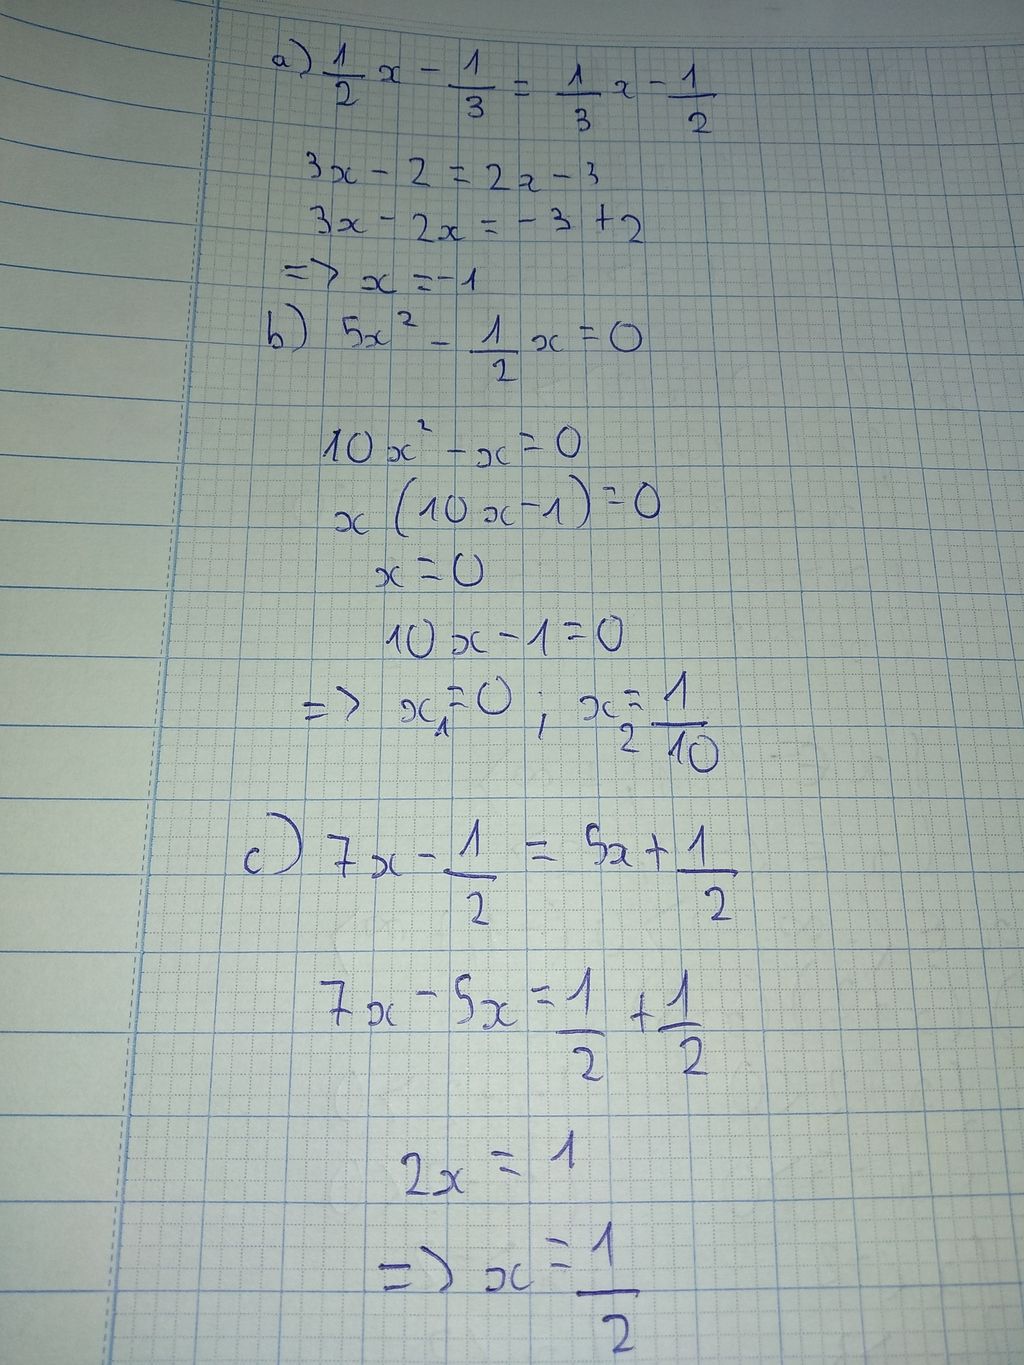 a) 1/2 x - 1/3 = 1/3 x - 1/2
3x - 2 = 2x - 3
3x - 2x = -3 + 2
=> x = -1
b) 5x² - 1/2 x = 0
10x² - x = 0
x (10x - 1) = 0
x = 0
10x - 1 = 0
=> x₁ = 0 ; x₂ = 1/10
c) 7x - 1/2 = 5x + 1/2
7x - 5x = 1/2 + 1/2
2x = 1
=> x = 1/2